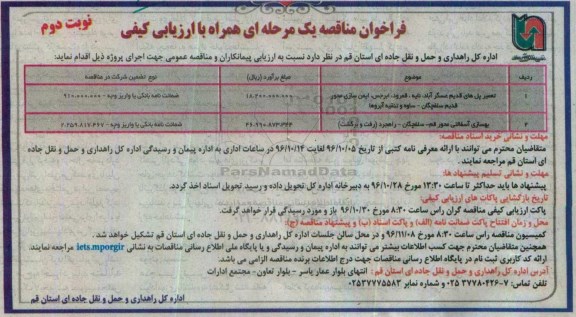 نوبت دوم
فراخوان مناقصه یک مرحله ای همراه با ارزیابی کیفی
اداره کل راهداری و حمل و نقل جاده ای استان قم در نظر دارد نسبت به ارزیابی پیمانکاران و مناقصه عمومی جهت اجرای پروژه ذیل اقدام نماید:
ردیف موضوع مبلغ برآورد (ریال) نوع تضمین شرکت در مناقصه
۱ تعمیر پل های قدیم عسگر آباد، نایه، قمرود، ایمن سازی محور قدیم سلفچگان - ساوه و تنقیه آبروها ضمانت نامه بانکی یا واریز وجه
۲ بهسازی آسفالتی محور قم- سلفچگان - راهجرد (رفت و برگشت) ضمانت نامه بانکی یا واریز وجه
مهلت و نشانی خرید اسناد مناقصه:
متقاضیان محترم می توانند با ارائه معرفی نامه کتبی از تاریخ ۹۶/۱۰/۰۵ لغایت ۹۶/۱۰/۱۴ در ساعات اداری به اداره پیمان و رسیدگی اداره کل راهداری و حمل و نقل جاده ای استان قم مراجعه نمایند.
مهلت و نشانی تسلیم پیشنهاد ها:
پیشنهاد ها باید حداکثر تا ساعت ۱۳:۳۰ مورخ ۹۶/۱۰/۲۸ به دبیرخانه اداره کل تحویل داده و رسید تحویل اسناد اخذ گردد.
تاریخ بازگشایی پاکات های ارزیابی کیفی:
پاکت ارزیابی کیفی مناقصه گران راس ساعت ۸:۳۰ مورخ ۹۶/۱۰/۳۰ باز و مورد رسیدگی قرار خواهد گرفت.
محل و زمان افتتاح پاکت ضمانت نامه (الف) و پاکت اسناد (ب) و پیشنهاد مناقصه (ج):
کمیسیون مناقصه راس ساعت ۸:۳۰ مورخ ۹۶/۱۱/۰۸ و در محل سالن جلسات اداره کل راهداری و حمل و نقل جاده ای استان قم تشکیل خواهد شد.
همچنین متقاضیان محترم جهت کسب اطلاعات بیشتر می توانند به اداره پیمان و رسیدگی و یا پایگاه ملی اطلاع رسانی مناقصات به نشانی iets.mporgir مراجعه نمایند.
ارائه کد کاربری ثبت نام در پایگاه اطلاع رسانی مناقصات جهت درج اطلاعات برنده مناقصه الزامی می باشد.
آدرس اداره کل راهداری و حمل و نقل جاده ای استان قم : انتهای بلوار عمار یاسر - بلوار تعاون - مجتمع ادارات
تلفن تماس: ۷-۳۷۷۸۰۴۴۶ ۰۲۵ و شماره نمابر ۰۲۵۳۷۷۷۵۵۸۳
اداره کل راهداری و حمل و نقل جاده ای استان قم
ParsNamadData